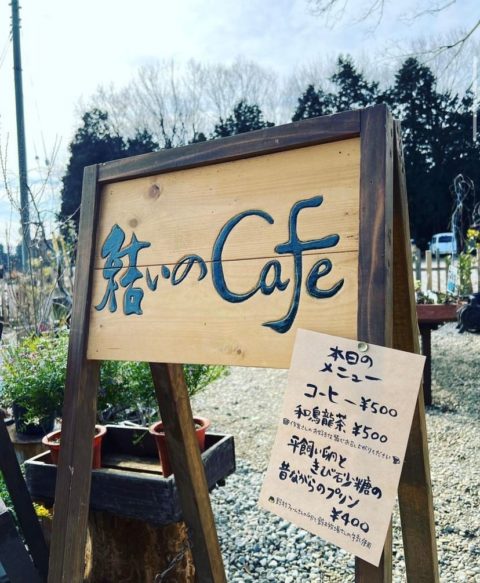 結いのCafe
本日の
メニュー
コーヒー ¥500
和烏龍茶 ¥500
平飼い卵と
きび砂糖の
昔ながらのプリン
¥400